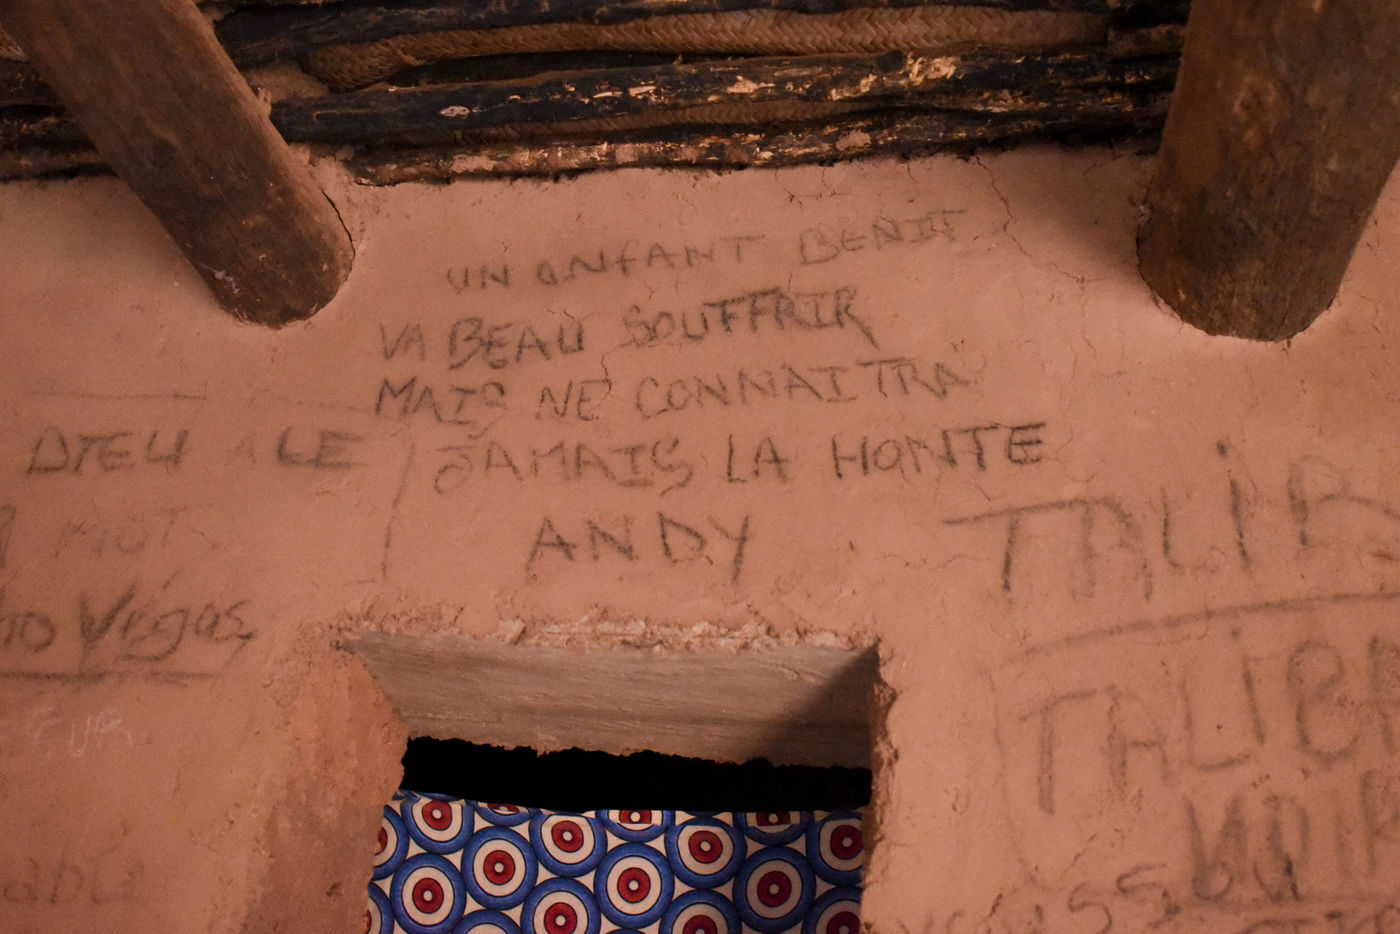 UN ENFANT BENIT
VA BEAU SOUFFRIR
MAIS NE CONNAITRA
JAMAIS LA HONTE
ANDY
DIEU A LE
MOT
Végas
EUR
TALIB
TALIBE
NOIR